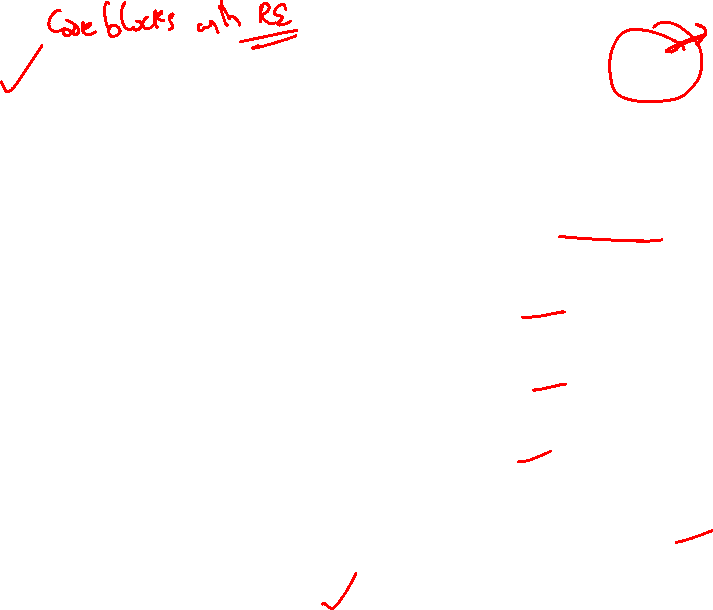 Code blocks with RE